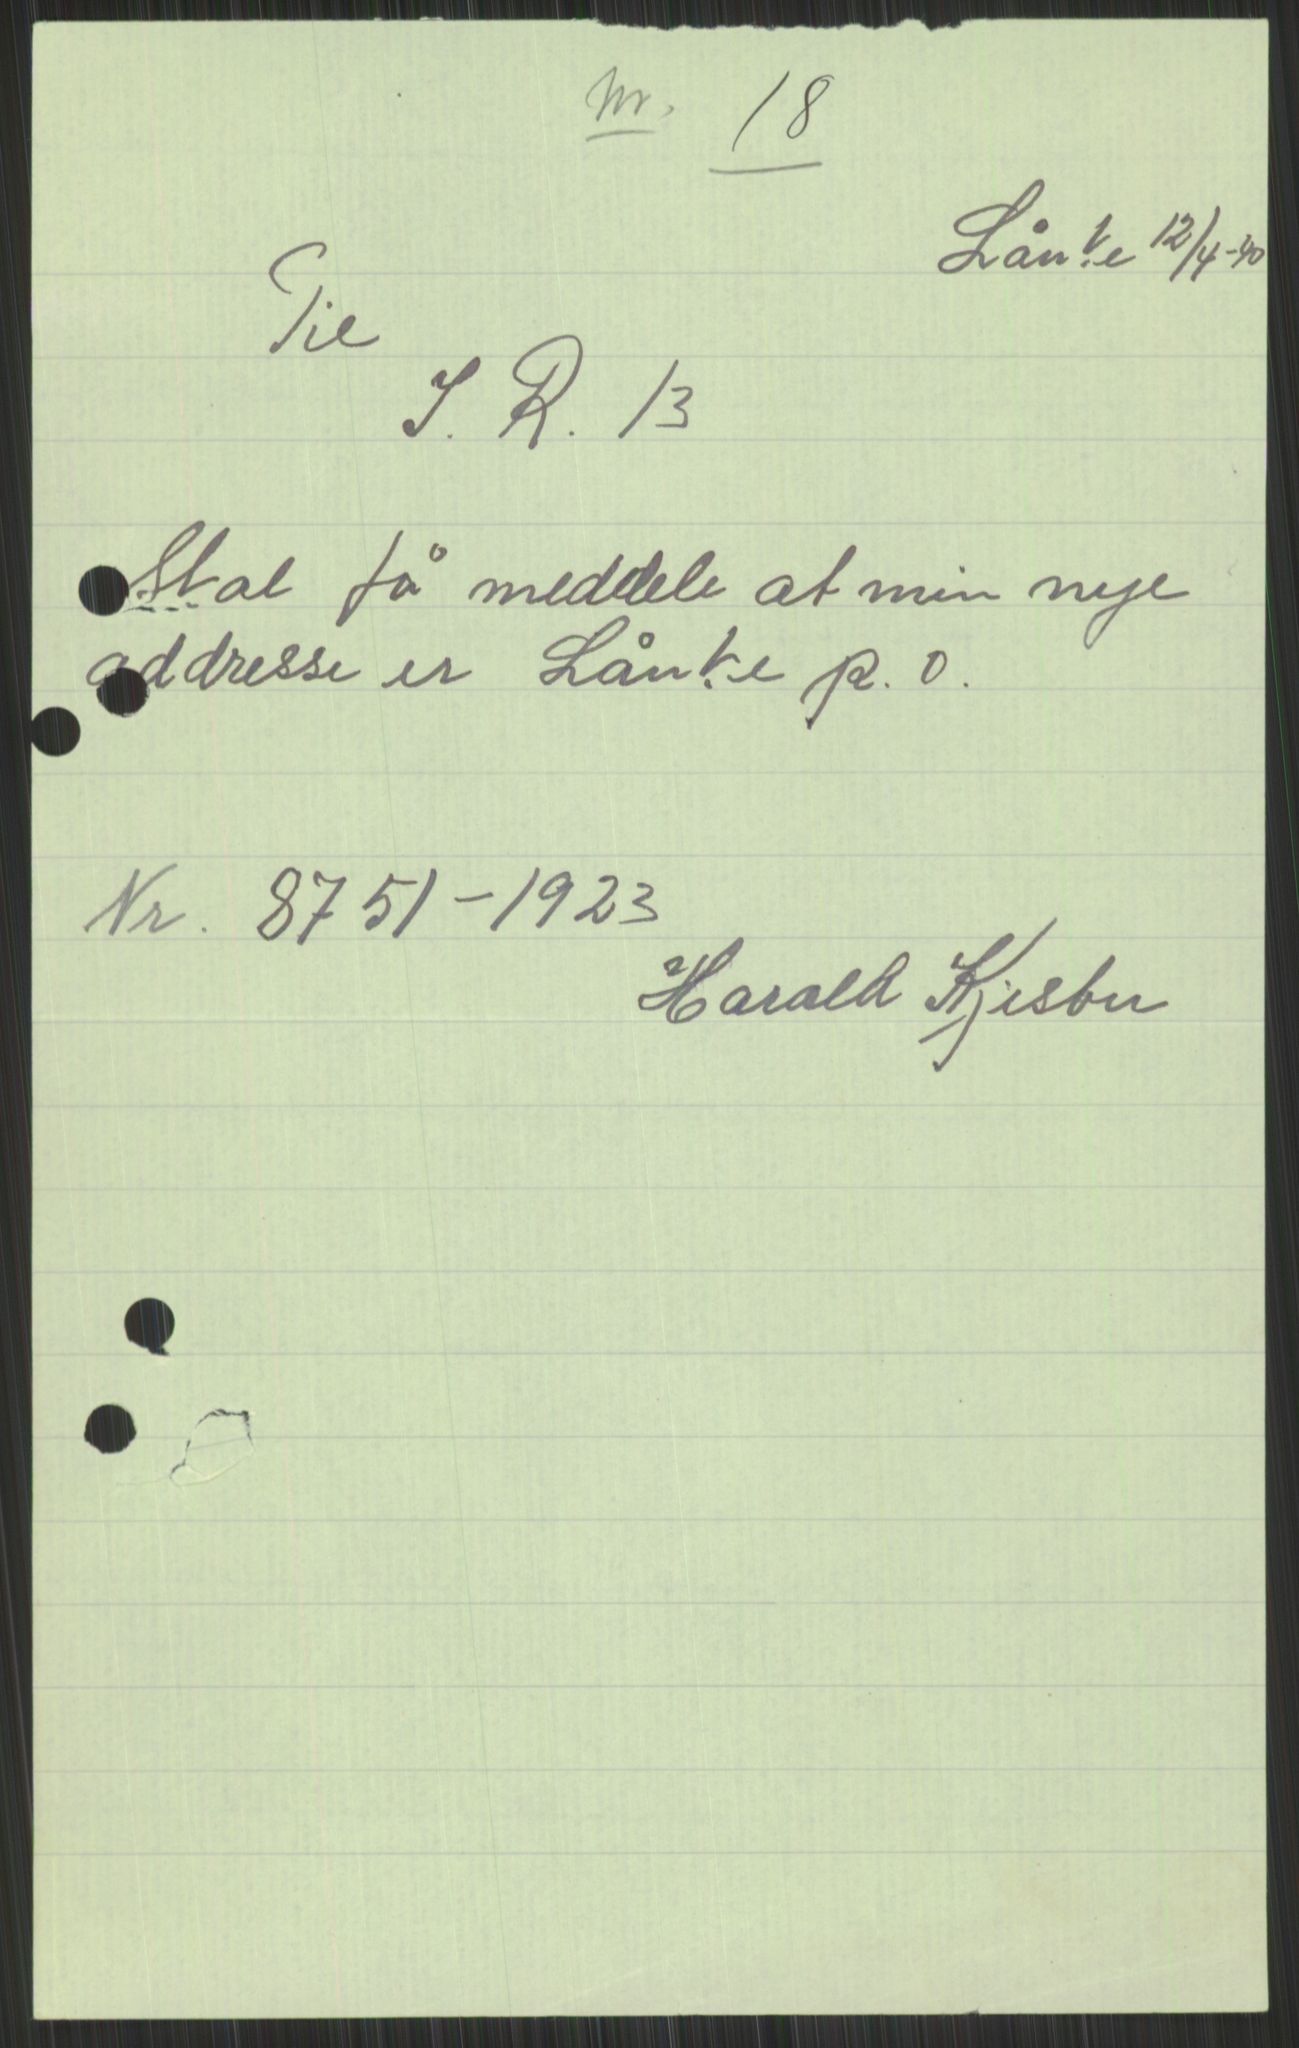 Nr. 18
Lånke 12/4-40
Til
I. R. 13
Skal få meddele at min nye
addresse er Lånke p. o.
Nr. 8751-1923
Harald Kjesbu